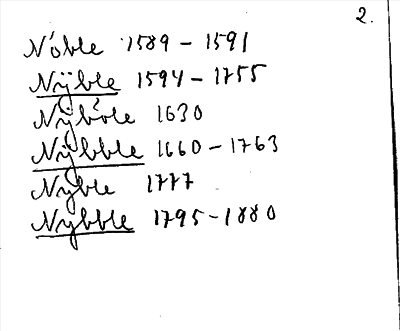 2.
Nóble 1589 - 1591
Nÿble 1594 - 1755
Nÿbole 1630
Nÿbble 1660 - 1763
Nyble 1777
Nybble 1795 - 1880